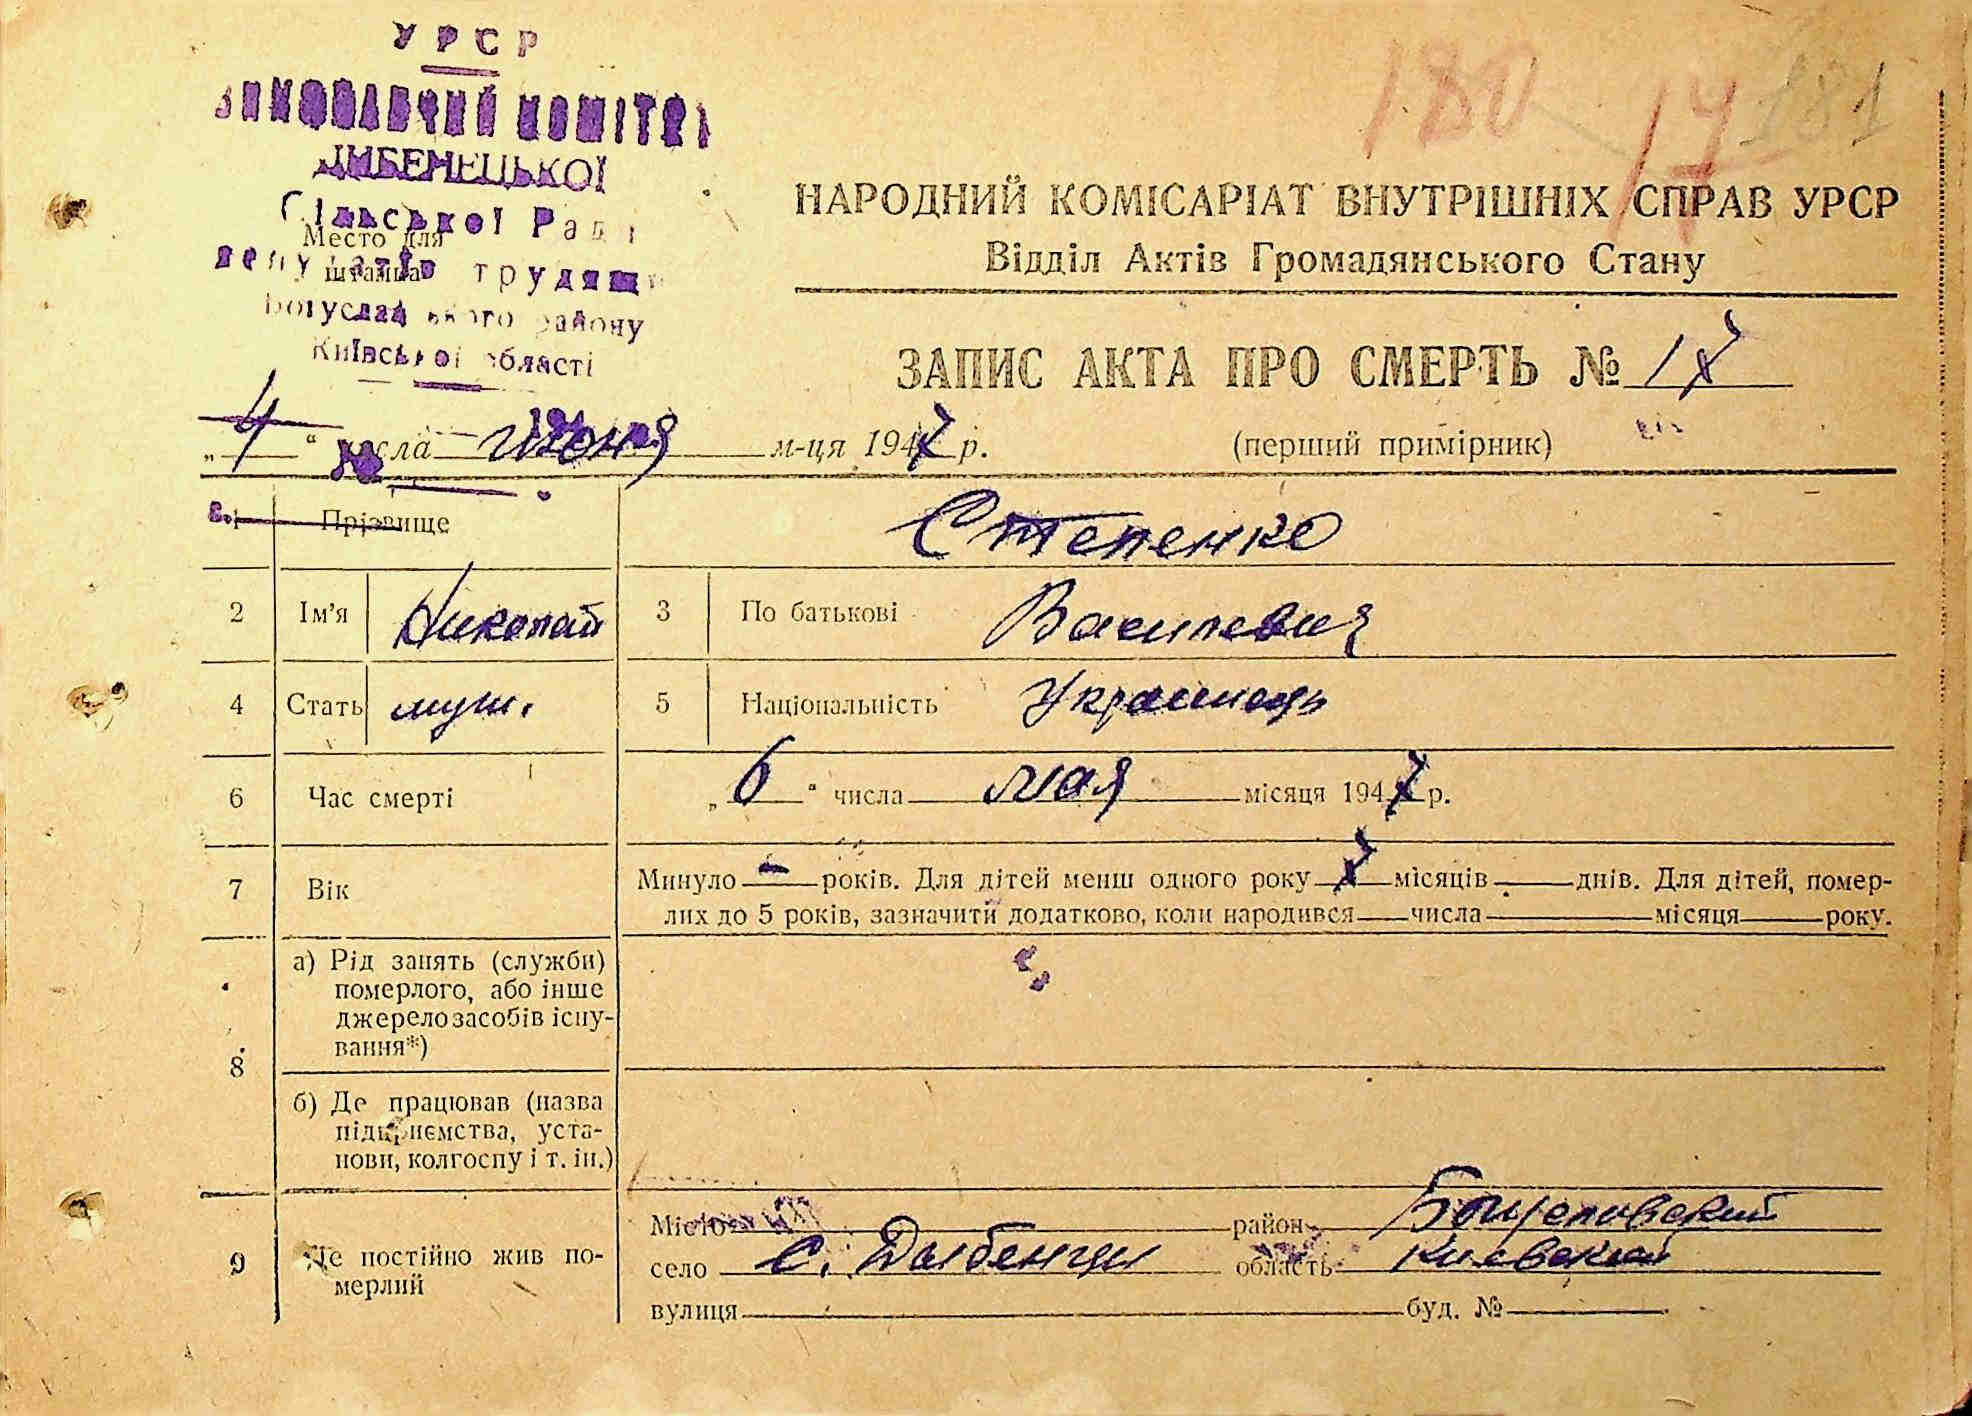 УРСР
ВИКОНАВЧИЙ КОМІТЕТ
ДИБЕНЕЦЬКОЇ
Сільської Ради
Место для
депутатів трудящ
штампа
Богуславського району
Київської області
180 17 181
НАРОДНИЙ КОМІСАРІАТ ВНУТРІШНІХ СПРАВ УРСР
Відділ Актів Громадянського Стану
ЗАПИС АКТА ПРО СМЕРТЬ № 17
„ 4 “ числа июня м-ця 1947 р. (перший примірник)
№
1 Прізвище Степенко
2 Ім’я Николай 3 По батькові Василевич
4 Стать муш. 5 Національність Украинець
6 Час смерті „ 6 “ числа мая місяця 1947 р.
7 Вік Минуло — років. Для дітей менш одного року 7 місяців днів. Для дітей, помер-
лих до 5 років, зазначити додатково, коли народився числа місяця року.
8 а) Рід занять (служби)
померлого, або інше
джерело засобів існу-
вання*)
б) Де працював (назва
підприємства, уста-
нови, колгоспу і т. ін.)
9 Де постійно жив по-
мерлий
Місто район Богуславский
село с. Дыбенцы область Киевская
вулиця буд. №